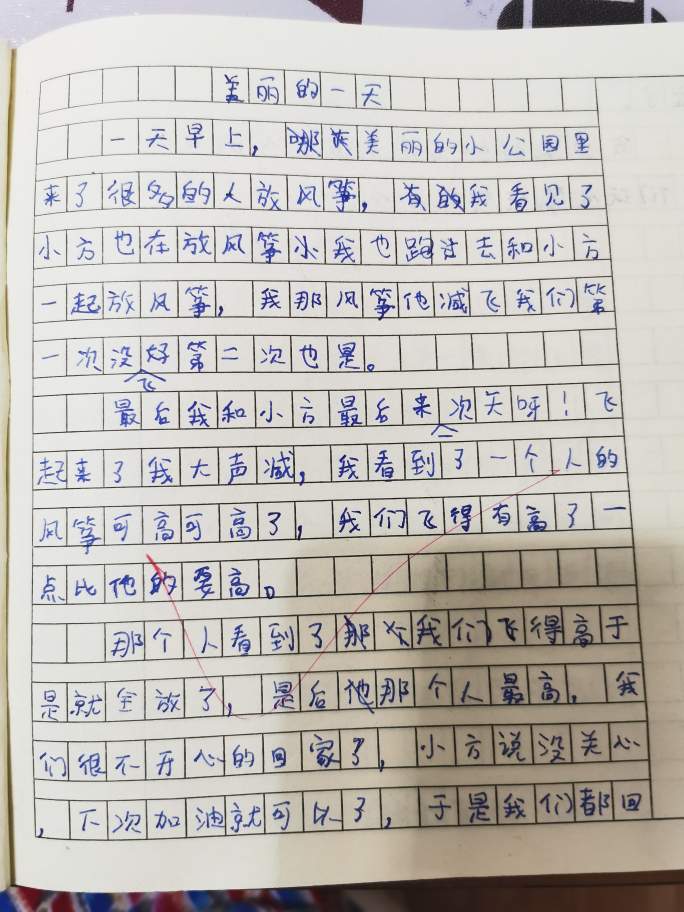 美丽的一天
一天早上，哪美丽的小公园里
来了很多的人放风筝，有的我看见了
小方也在放风筝我也跑过去和小方
一起放风筝，我那风筝他减飞我们第
一次没好第二次也是。
飞
最后我和小方最后来次天呀！飞
二
起来了我大声减，我看到了一个人的
风筝可高可高了，我们飞得有高了一
点比他的要高。
那个人看到了那个我们飞得高于
是就全放了，是后他那个人最高，我
们很不开心的回家了，小方说没关心
，下次加油就可以了，于是我们都回